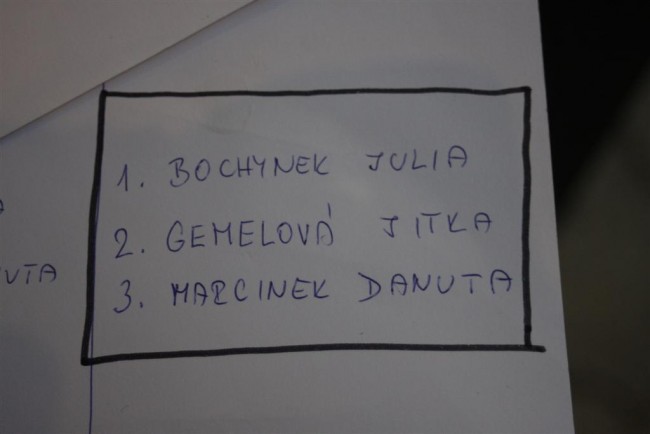 1. BOCHYNEK JULIA
2. GEMELOVÁ JITKA
3. MARCINEK DANUTA